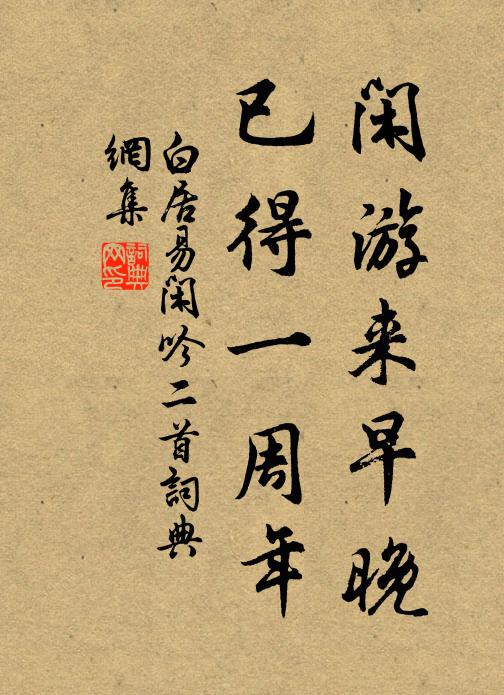 闲游来早晚
已得一周年
白居易闲吟二首詞典
網集
詞典
网印